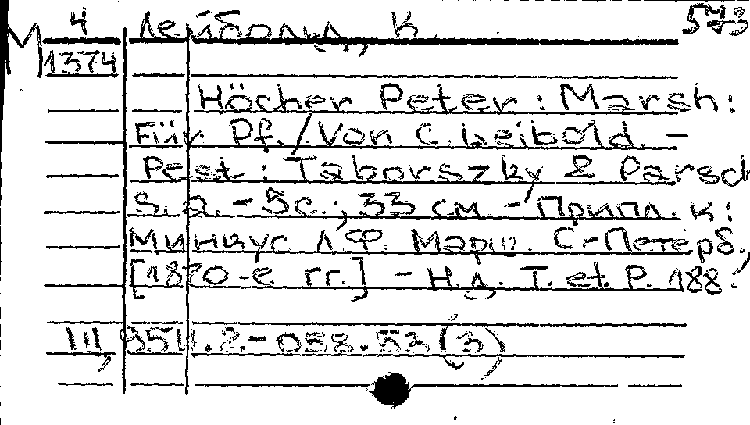 4 Лейбольд, К. 573
М 1374
Höcher Peter : Marsh :
Für Pf. / Von C. Leibold. -
Pest : Taborszky & Parsch
S. a. - 5 с.; 33 см - Припл. к:
Минкус Л.Ф. Марш. С-Петерб.,
[1870-е гг.] - Н.д. T. et. P. 188.
III, 9511.2.-058.53 (3)